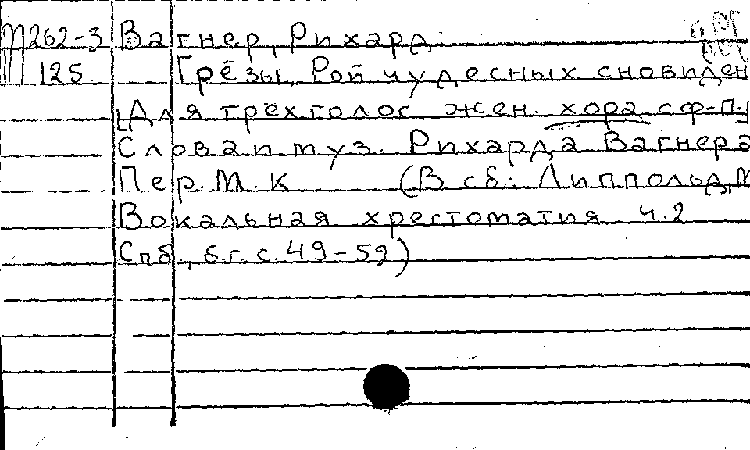 М262-3 Вагнер, Рихард.
М 125 Грёзы. Рой чудесных сновиден
[Для трёхголос. жен. хора с ф-п.]
Слова и муз. Рихарда Вагнера
Пер. М. К. (В сб.: Липпольд, М
Вокальная хрестоматия ч. 2
Спб., б.г. с. 49-59)